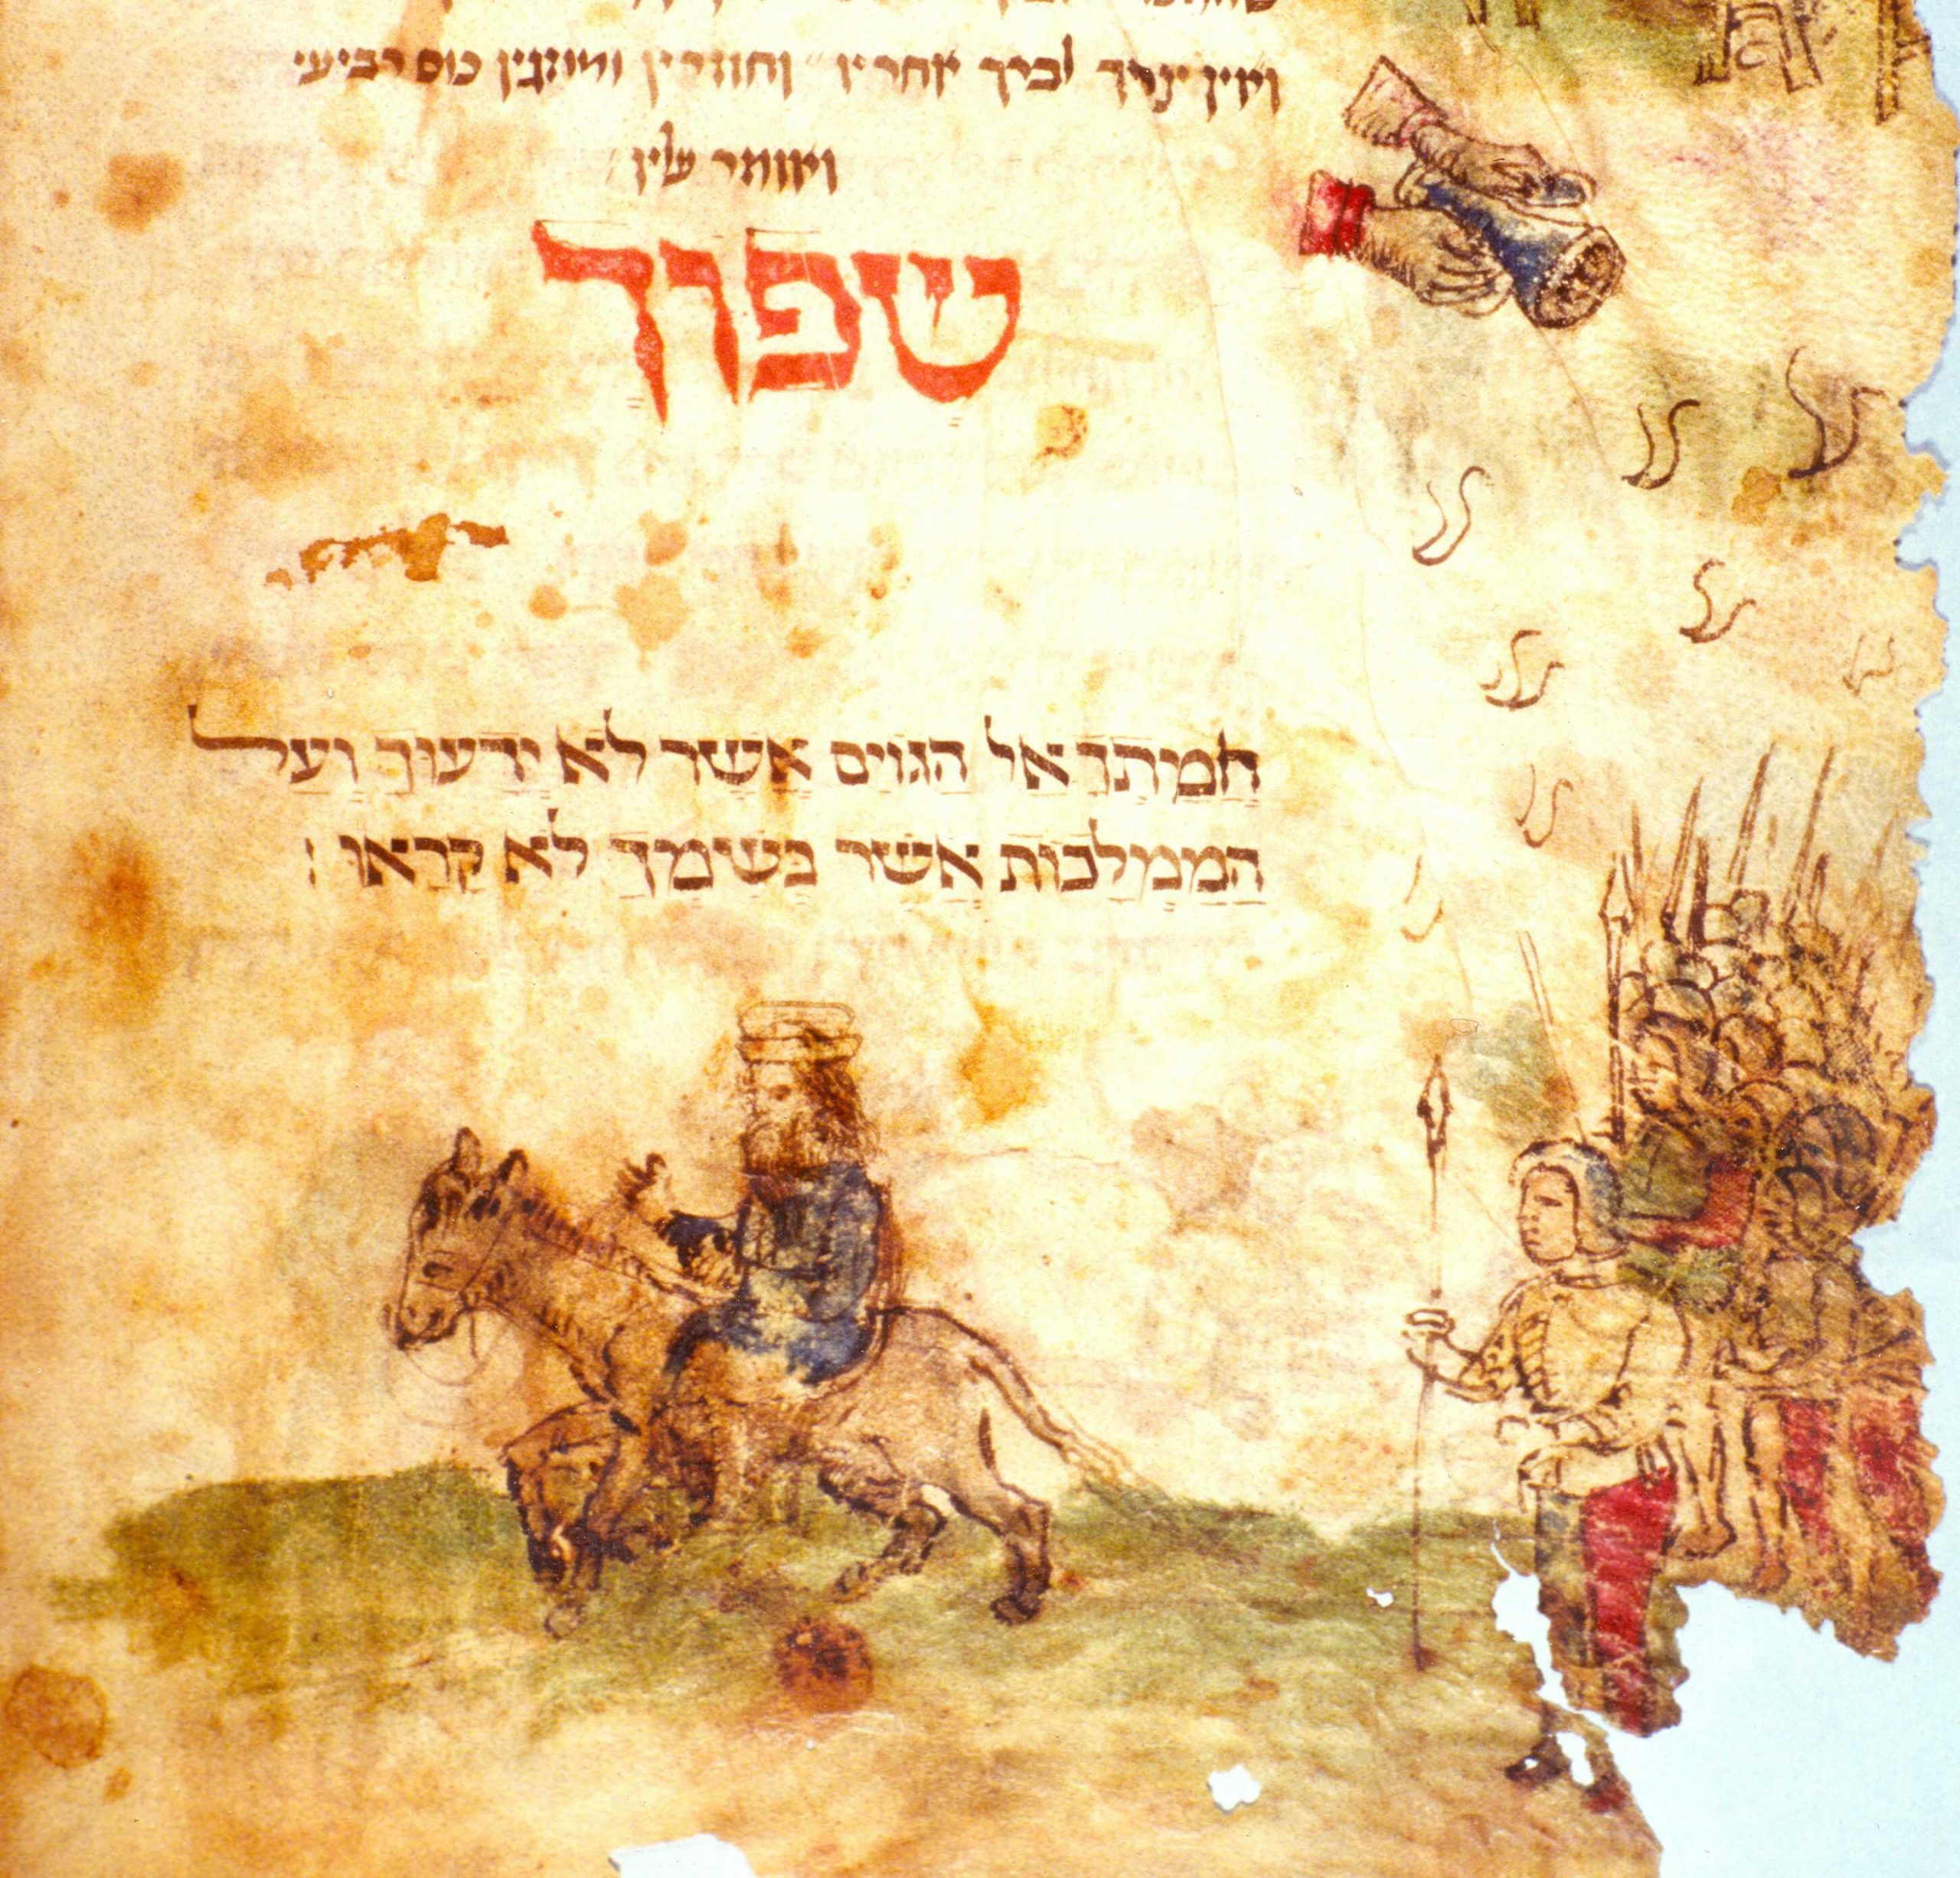 ואין צריך לברך אחריו וחוזרין ומוזגין כוס רביעי
ואומר עליו
שפוך
חֲמָתְךָ אֶל הַגּוֹיִם אֲשֶׁר לֹא יְדָעוּךָ וְעַל
הַמַּמְלָכוֹת אֲשֶׁר בְּשִׁמְךָ לֹא קָרָאוּ :